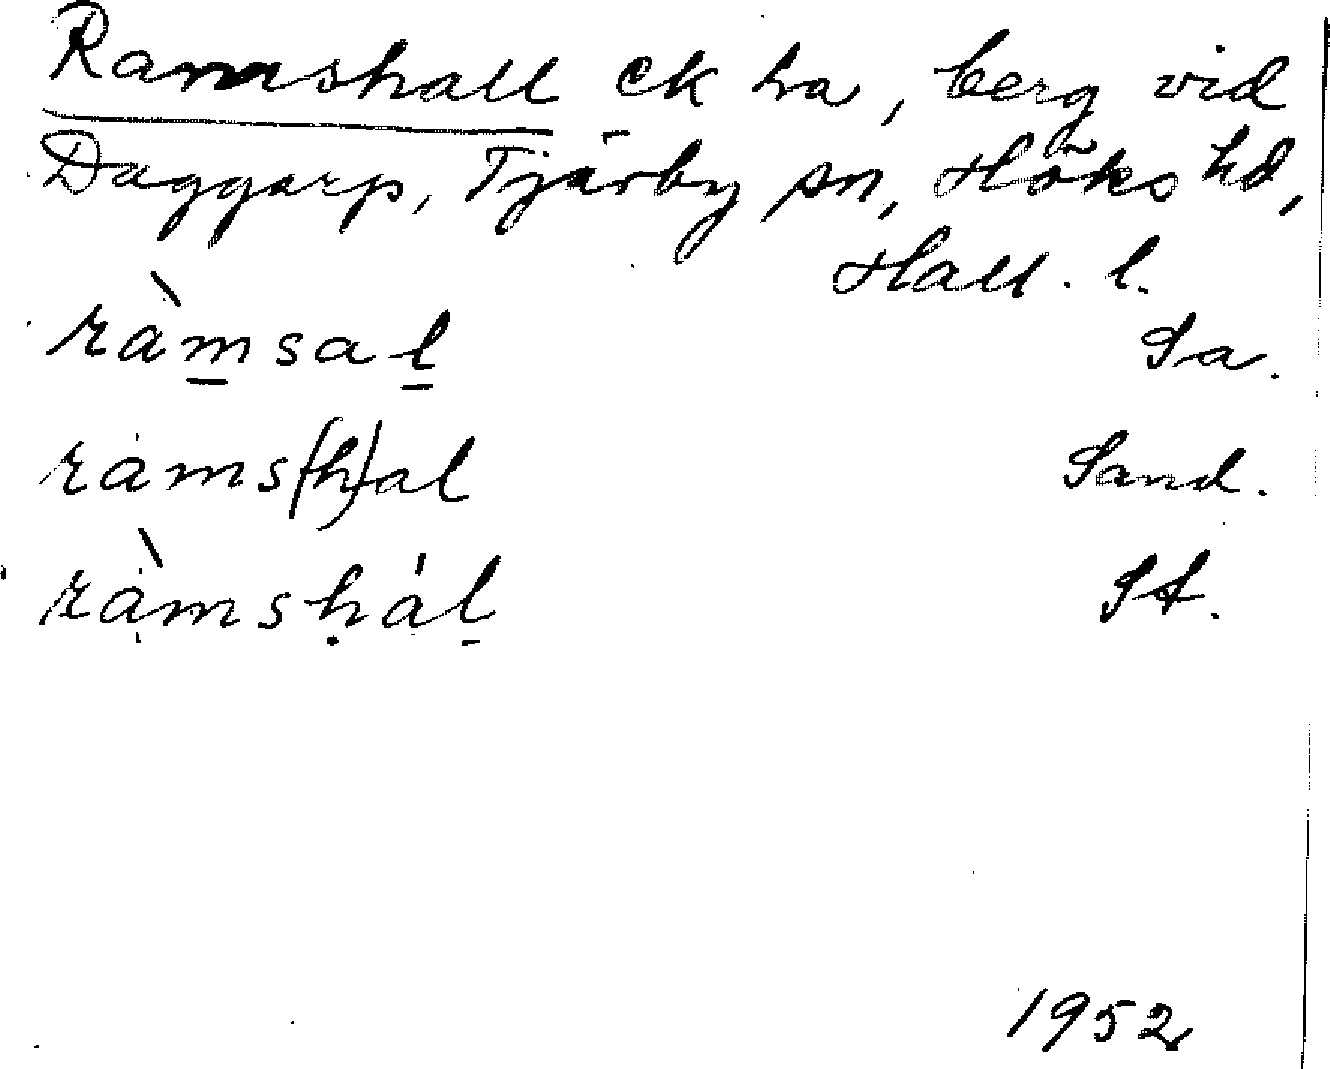 Ramshall ek ha, berg vid
Daggarp, Tjärby sn, Höks hd,
Hall. l.
ràm̲sal̲ Sa.
rams(h)al Sand.
ràmsḥál̲ St.
1952